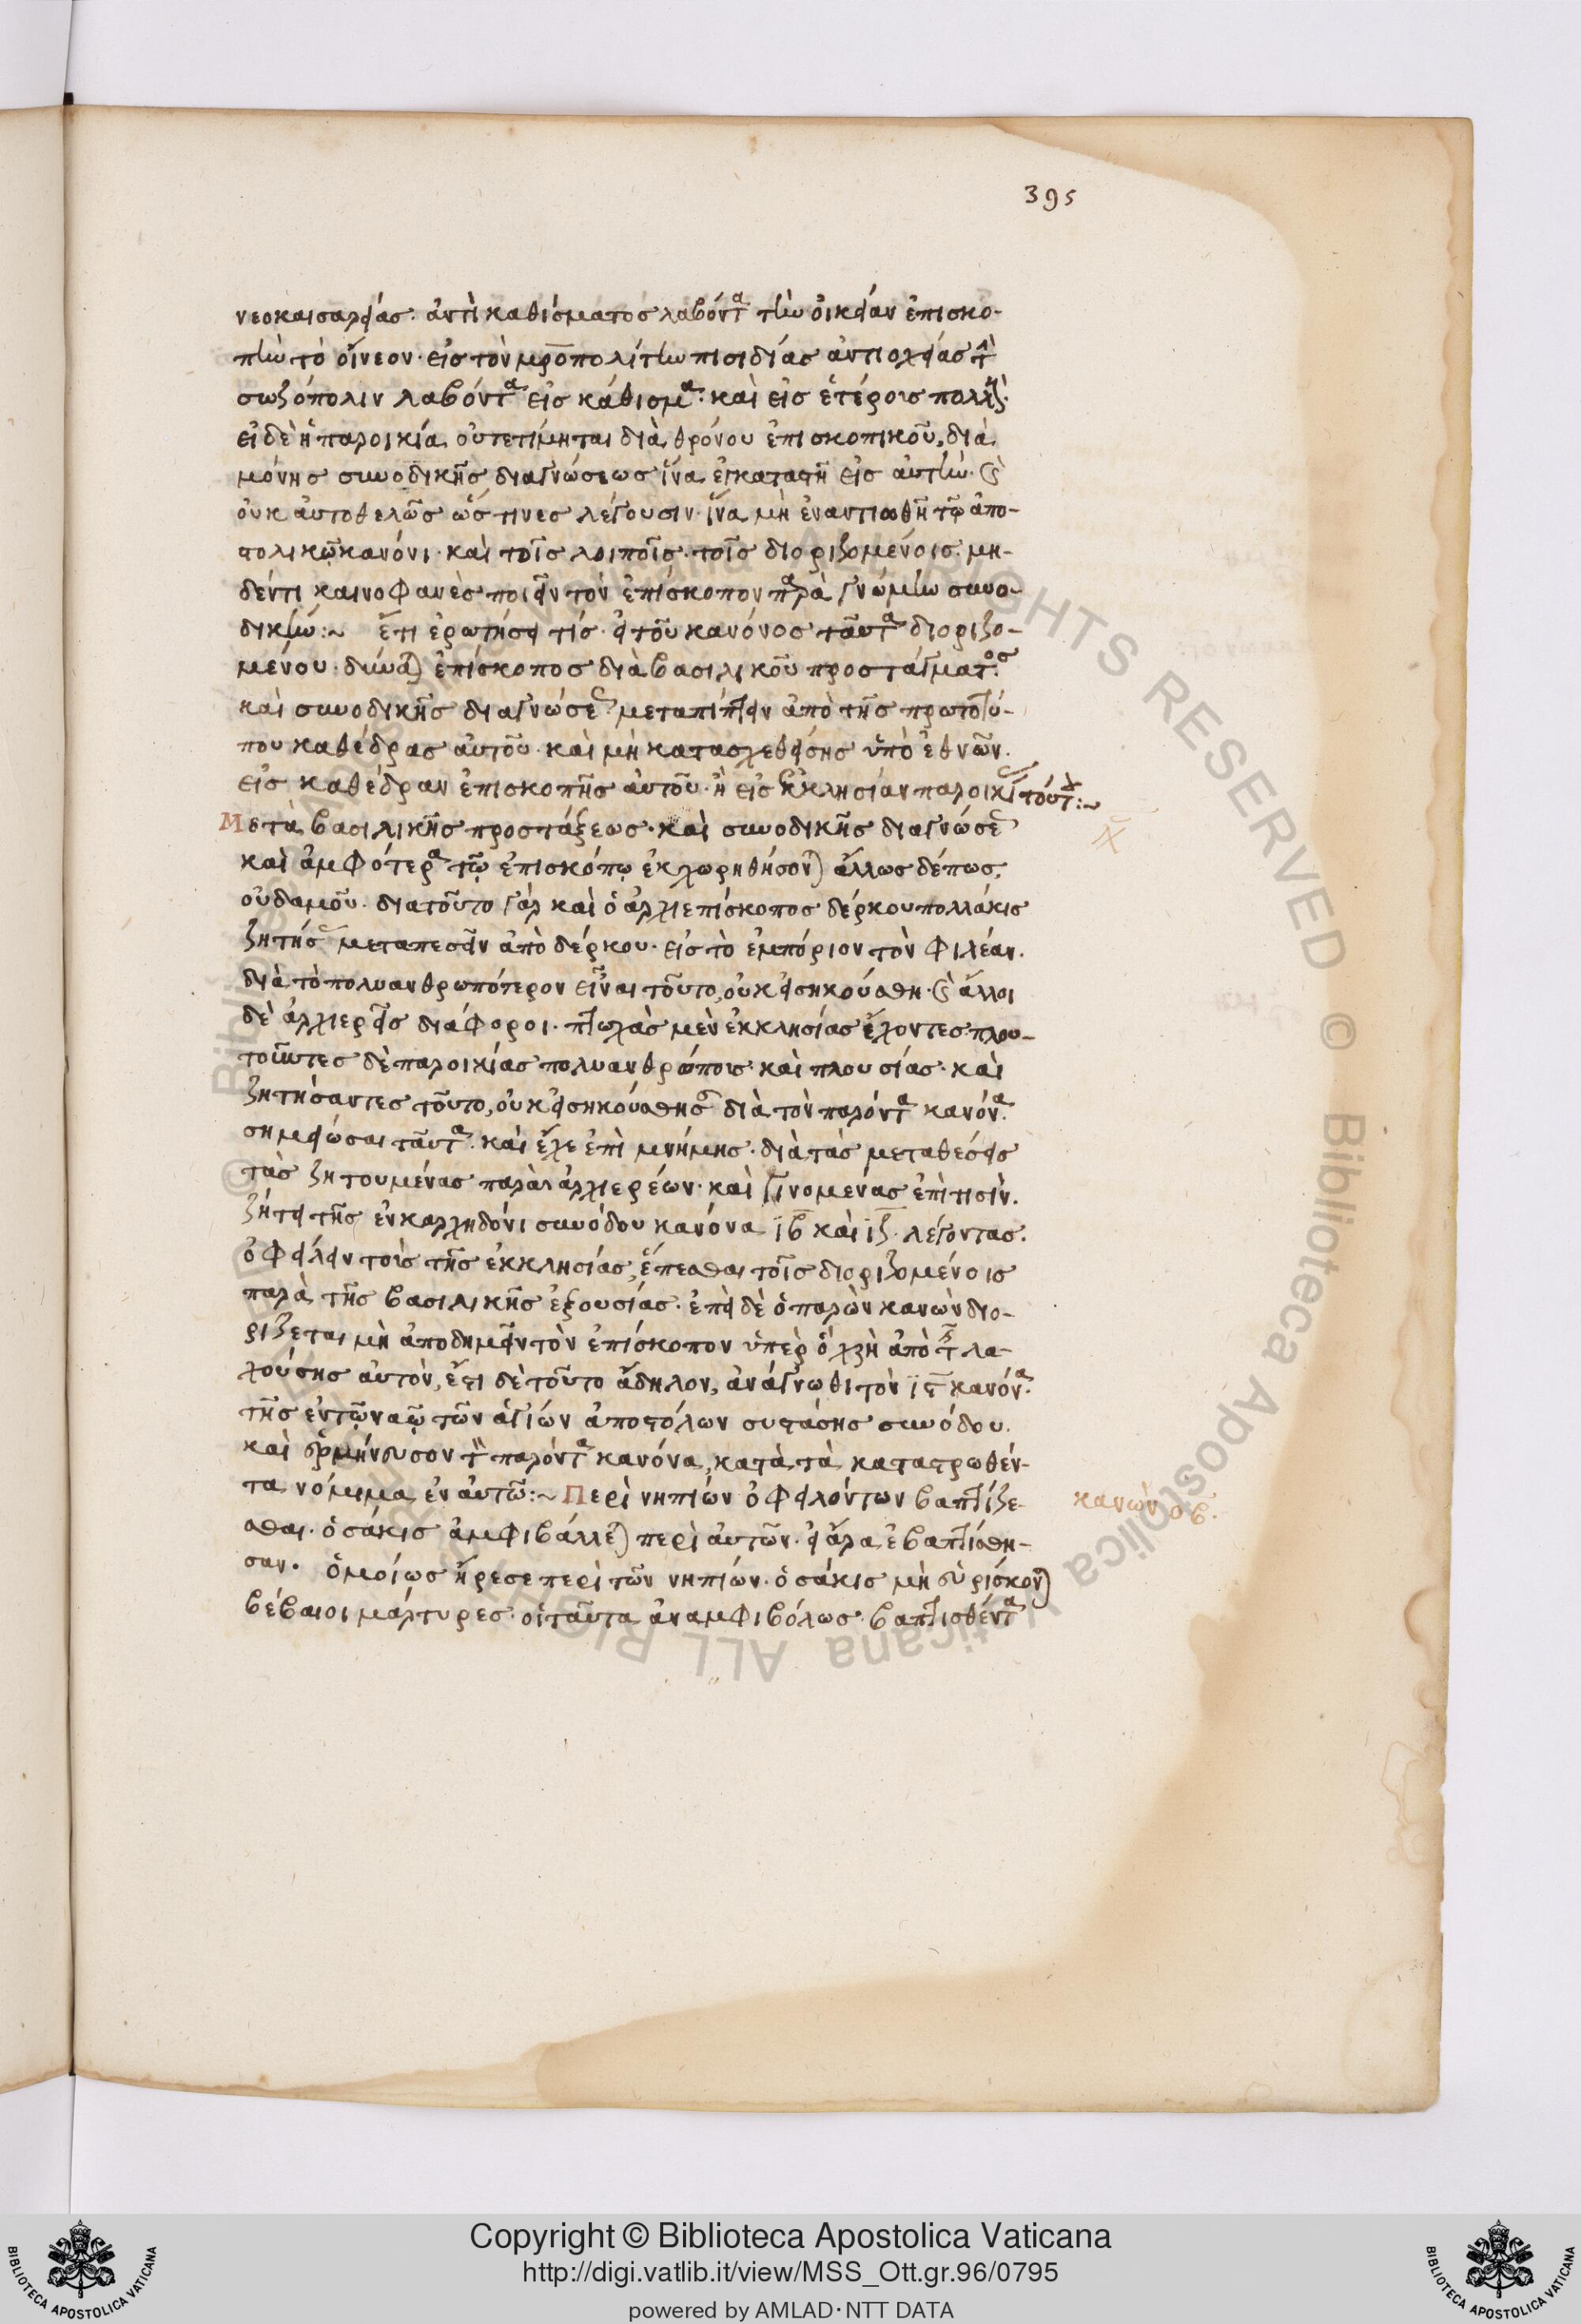 395
νεοκαισαρείας· ἀντὶ καθίσματος λαβόντα τὴν οἰκείαν ἐπισκο-
πὴν τὸ οἴνεον· εἰς τὸν μροπολίτην πισιδίας ἀντιοχείας τὴν
σωζόπολιν λαβόντα εἰς κάθισμα· καὶ εἰς ἑτέροις πολλοῖς·
εἰ δὲ ἡ παροικία οὐ τετίμηται διὰ θρόνου ἐπισκοπικοῦ, διὰ
μόνης συνοδικῆς διαγνώσεως ἵνα ἐγκαταστῆ εἰς αὐτὴν· καὶ
οὐκ αὐτοθελῶς ὥς τινες λέγουσιν· ἵνα μὴ ἐναντιωθῆ τῷ ἀπο-
στολικῷ κανόνι· καὶ τοῖς λοιποῖς· τοῖς διοριζομένοις μη-
δέν τι καινοφανὲς ποιεῖν τὸν ἐπίσκοπον παρὰ γνώμην συνο-
δικήν:~ ἔτι ἐρωτήσει τίς· εἰ τοῦ κανόνος ταῦτα διοριζο-
μένου· δύναται ἐπίσκοπος διὰ βασιλικοῦ προστάγματος
καὶ συνοδικῆς διαγνώσεως μεταπίπτειν ἀπὸ τῆς πρωτοτύ-
που καθέδρας αὐτοῦ· καὶ μὴ κατασχεθείσης ὑπὸ ἐθνῶν·
εἰς καθέδραν ἐπισκοπῆς αὐτοῦ· ἢ εἰς ἐκκλησίαν παροικίας τούτου:~
Μετὰ βασιλικῆς προστάξεως· καὶ συνοδικῆς διαγνώσεως
καὶ ἀμφότερα τῷ ἐπισκόπῳ ἐκχωρηθήσονται ἄλλως δέ πως,
οὐδαμοῦ· διατοῦτο γὰρ καὶ ὁ ἀρχιεπίσκοπος δέρκου πολλάκις
ζητήσας μεταπεσεῖν ἀπὸ δέρκου· εἰς τὸ ἐμπόριον τὸν φιλέαν·
διὰ τὸ πολυανθρωπότερον εἶναι τοῦτο, οὐκ εἰσηκούσθη· καὶ ἄλλοι
δὲ ἀρχιερεῖς διάφοροι· πτωχὰς μὲν ἐκκλησίας ἔχοντες· πλου-
τοῦντες δὲ παροικίας πολυανθρώπους· καὶ πλουσίας· καὶ
ζητήσαντες τοῦτο, οὐκ εἰσηκούσθησαν διὰ τὸν παρόντα κανόνα·
σημείωσαι ταῦτα· καὶ ἔχε ἐπὶ μνήμης· διὰ τὰς μεταθέσεις
τὰς ζητουμένας παρὰ ἀρχιερέων· καὶ γινομένας ἐπὶ τισὶν·
ζήτει τῆς ἐν καρχηδόνι συνόδου κανόνα ιβ καὶ ιζ· λέγοντας·
ὀφείλειν τοὺς τῆς ἐκκλησίας, ἕπεσθαι τοῖς διοριζομένοις
παρὰ τῆς βασιλικῆς ἐξουσίας· ἐπεὶ δὲ ὁ παρὼν κανὼν διο-
ρίζεται μὴ ἀποδημεῖν τὸν ἐπίσκοπον ὑπὲρ ὃ χρὴ ἀπὸ τῆς λα-
χούσης αὐτὸν, ἔστι δὲ τοῦτο ἄδηλον, ἀνάγνωθι τὸν ιϛ κανόνα·
τῆς ἐν τῷ ναῷ τῶν ἁγίων ἀποστόλων συστάσης συνόδου·
καὶ ἑρμήνευσον τὸν παρόντα κανόνα, κατὰ τὰ καταστρωθέν-
τα νόμιμα ἐν αὐτῶ:~ Περὶ νηπίων ὀφειλόντων βαπτίζε-
σθαι· ὁσάκις ἀμφιβάλλεται περὶ αὐτῶν· εἰ ἄρα ἐβαπτίσθη-
σαν· ὁμοίως ἤρεσε περὶ τῶν νηπίων· ὁσάκις μὴ εὑρίσκονται
βέβαιοι μάρτυρες· οἱ ταῦτα ἀναμφιβόλως· βαπτισθέντα
κανὼν οβ·
Copyright © Biblioteca Apostolica Vaticana
http://digi.vatlib.it/view/MSS_Ott.gr.96/0795
powered by AMLAD·NTT DATA
BIBLIOTECA APOSTOLICA VATICANA
BIBLIOTECA APOSTOLICA VATICANA